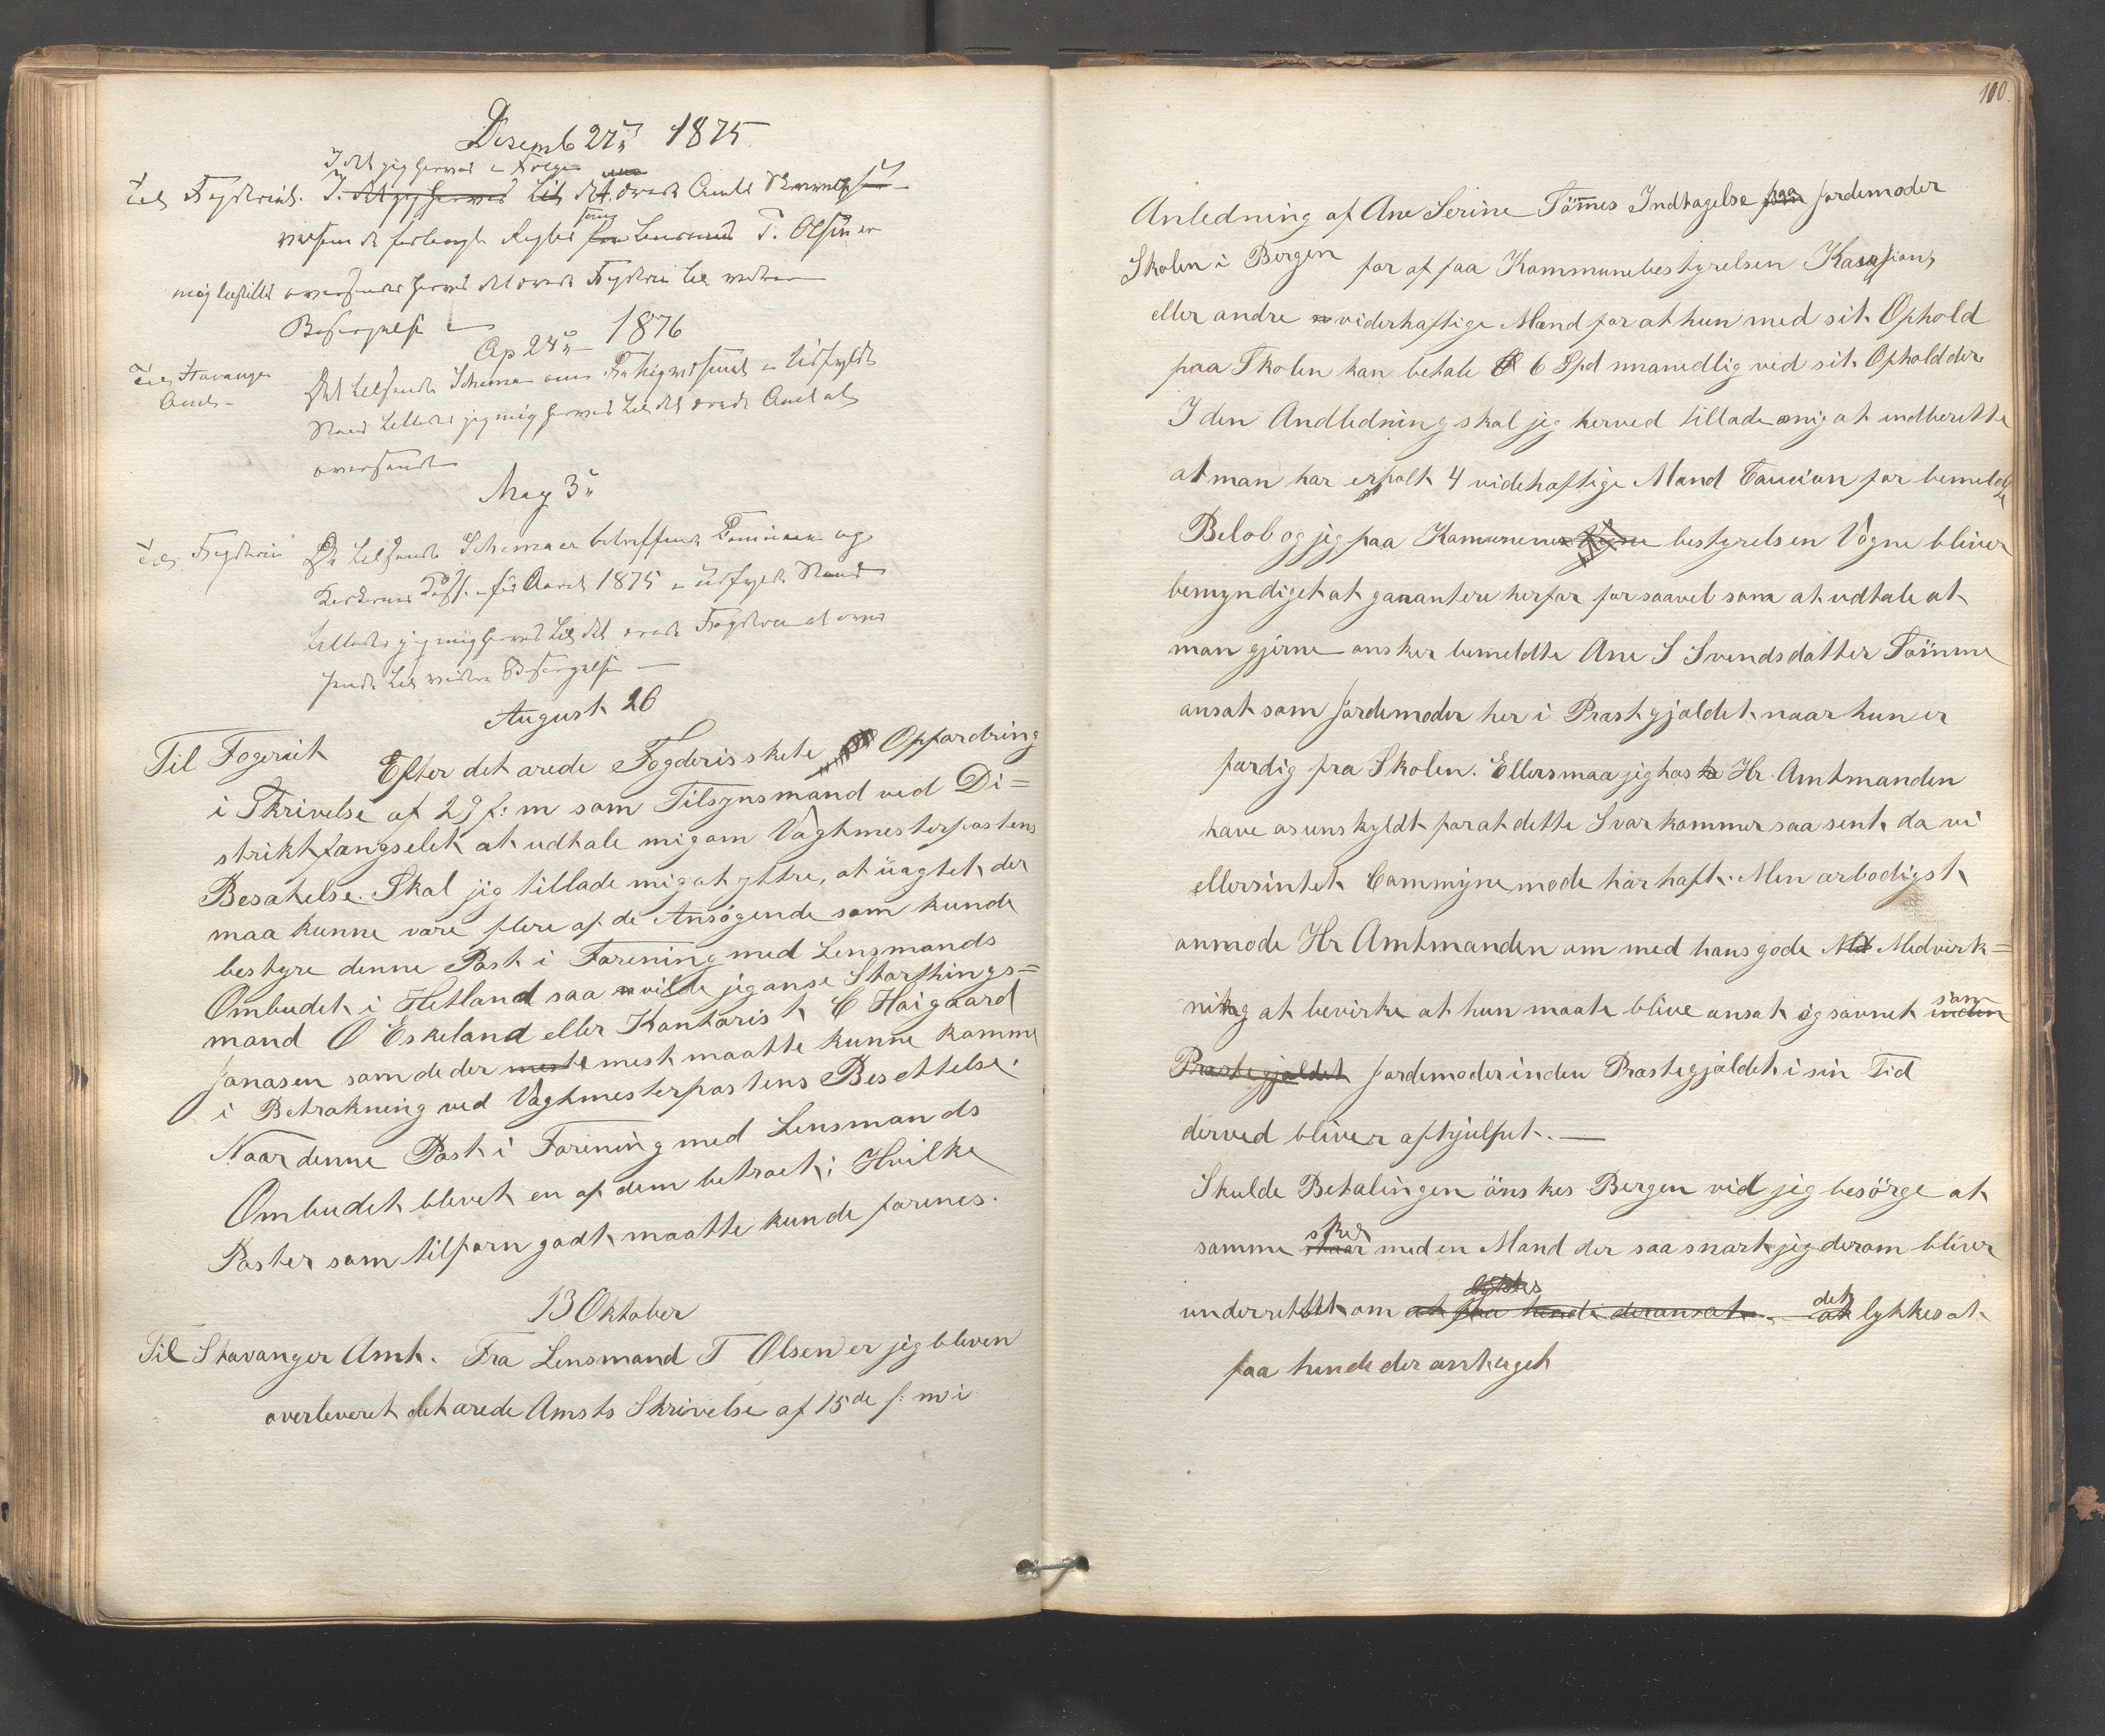 Desemb 27de 1875
Idet jeg herved i Følge
Til Fogderiet. I det ærede Amts Skrivelse
T. Olsen er
mig tilstillet oversendes herved det ærede Fogderie til videre
Besørgelse
Ap 24de 1876
Til Stavanger
Amt
Det tilsendte Schema om i udfyldt
Stand tillader jeg mig herved til det ærede Amt at
oversende
May 3de
Til Fogderiet De tilsendte Schemaer betreffende og
for Aaret 1875 i udfyldt Stand
tillader jeg mig herved til det ærede Fogderie at over
sende til videre Besørgelse
August 26
Til Fogeriet Efter det ærede Fogderis skete Opfordring
i Skrivelse af 29 f: m som Tilsynsmand ved Di=
striktfængselet at udtale mig om Vagtmesterpostens
Besatelse. Skal jeg tillade mig at yttre, at uagtet der
maa kunne være flere af de Ansögende som kunde
bestyre denne Post i Forening med Lensmands
Ombudet i Hetland saa vilde jeg anse Storthings=
mand O Eskeland eller Kontorist C Höigaard
Jonasen som de der meste mest maatte kunne komme
i Betrakning ved Vagtmesterpostens Besettelse.
Naar denne Post i Forening med Lensmands
Ombudet blevet en af dem betroet; Hvilke
Poster som tilforn godt maatte kunde forenes.
13 Oktober
Til Stavanger Amt. Fra Lensmand T Olsen er jeg bleven
overleveret det ærede Amsts Skrivelse af 15de f: m i
110.
Anledning af Ane Serine Tömmes Indtagelse paa Jordemoder
Skolen i Bergen for af faa Kommunebestyrelsen Kausions
eller andre viderhaftige Mænd for at hun med sit Ophold
paa Skolen kan betale 6 Spd maanedlig ved sit Ophold der
I den Andledning skal jeg herved tillade mig at indberette
at man har erholt 4 videhaftige Mænd Caution for bemeldte
Belob og jeg paa Kamunens bestyrelsen Vögne bliver
bemyndiget at garantere herfor for saavel som at udtale at
man gjerne onsker bemeldte Ane S Svendsdatter Tömme
ansat som Jordemoder her i Præstgjældet naar hun er
færdig fra Skolen. Ellers maa jeg hos Hr. Amtmanden
have os unskyldt for at dette Svar kommer saa sent da vi
ellers intet Commyne möde har haft. Men ærbodigst
anmode Hr Amtmanden om med hans gode Med Medvirk=
ning at bevirke at hun maate blive ansat og savnet som inden
Præstegjældet Jordemoder inden Præstegjældet i sin Tid
derved bliver afhjulpet. —
Skulde Betalingen önskes Bergen vid jeg besörge at
samme staar sker med en Mand der saa snart jeg derom bliver
underrettet om at faa hende der ansat. det at lykkes at
faa hende der antaget